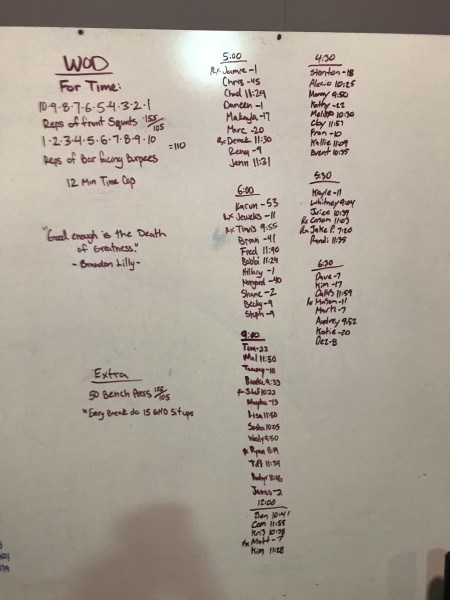 WOD
For Time:
10-9-8-7-6-5-4-3-2-1
Reps of front Squats 155/105
1-2-3-4-5-6-7-8-9-10 =110
Reps of Bar facing Burpees
12 Min Time Cap
"Good enough is the Death
of Greatness."
- Brandon Lilly -
Extra
50 Bench Press 155/105
*Every Break do 15 GHD Situps
5:00
Rx Jaimie -1
Chris -45
Chad 11:29
Daneen -1
Makayla -17
Marc -20
Rx Derek 11:30
Rena -9
Jenn 11:31
6:00
Karun -53
Rx Jewels -11
Rx Travis 9:55
Brian -41
Fred 11:40
Bobbi 11:24
Hillary -1
-40
Shane -2
Becky -9
Steph -9
9:00
Tom -22
Mal 11:50
Tammy -10
9:33
10:22
-13
Lisa 11:50
Sasha 10:05
Wendy 9:50
Rx Ryan 8:19
Tiff 11:34
James -2
12:00
Dan 10:41
Cam 11:55
Kris 10:38
Rx Matt -7
Kim 11:28
4:30
Stanton -18
Alecia 10:25
Manny 9:50
Kathy -22
10:30
Clay 11:51
Fran -10
Kallie 11:09
Brent 10:35
5:30
Kayle -11
Whitney 9:04
Juice 10:39
Rx Carson 11:03
Rx Jake P. 7:20
Randi 11:35
6:30
Dave -7
Kim -17
Dallas 11:59
Rx Mason -11
Marti -7
Audrey 9:52
Katie -20
Dez -8